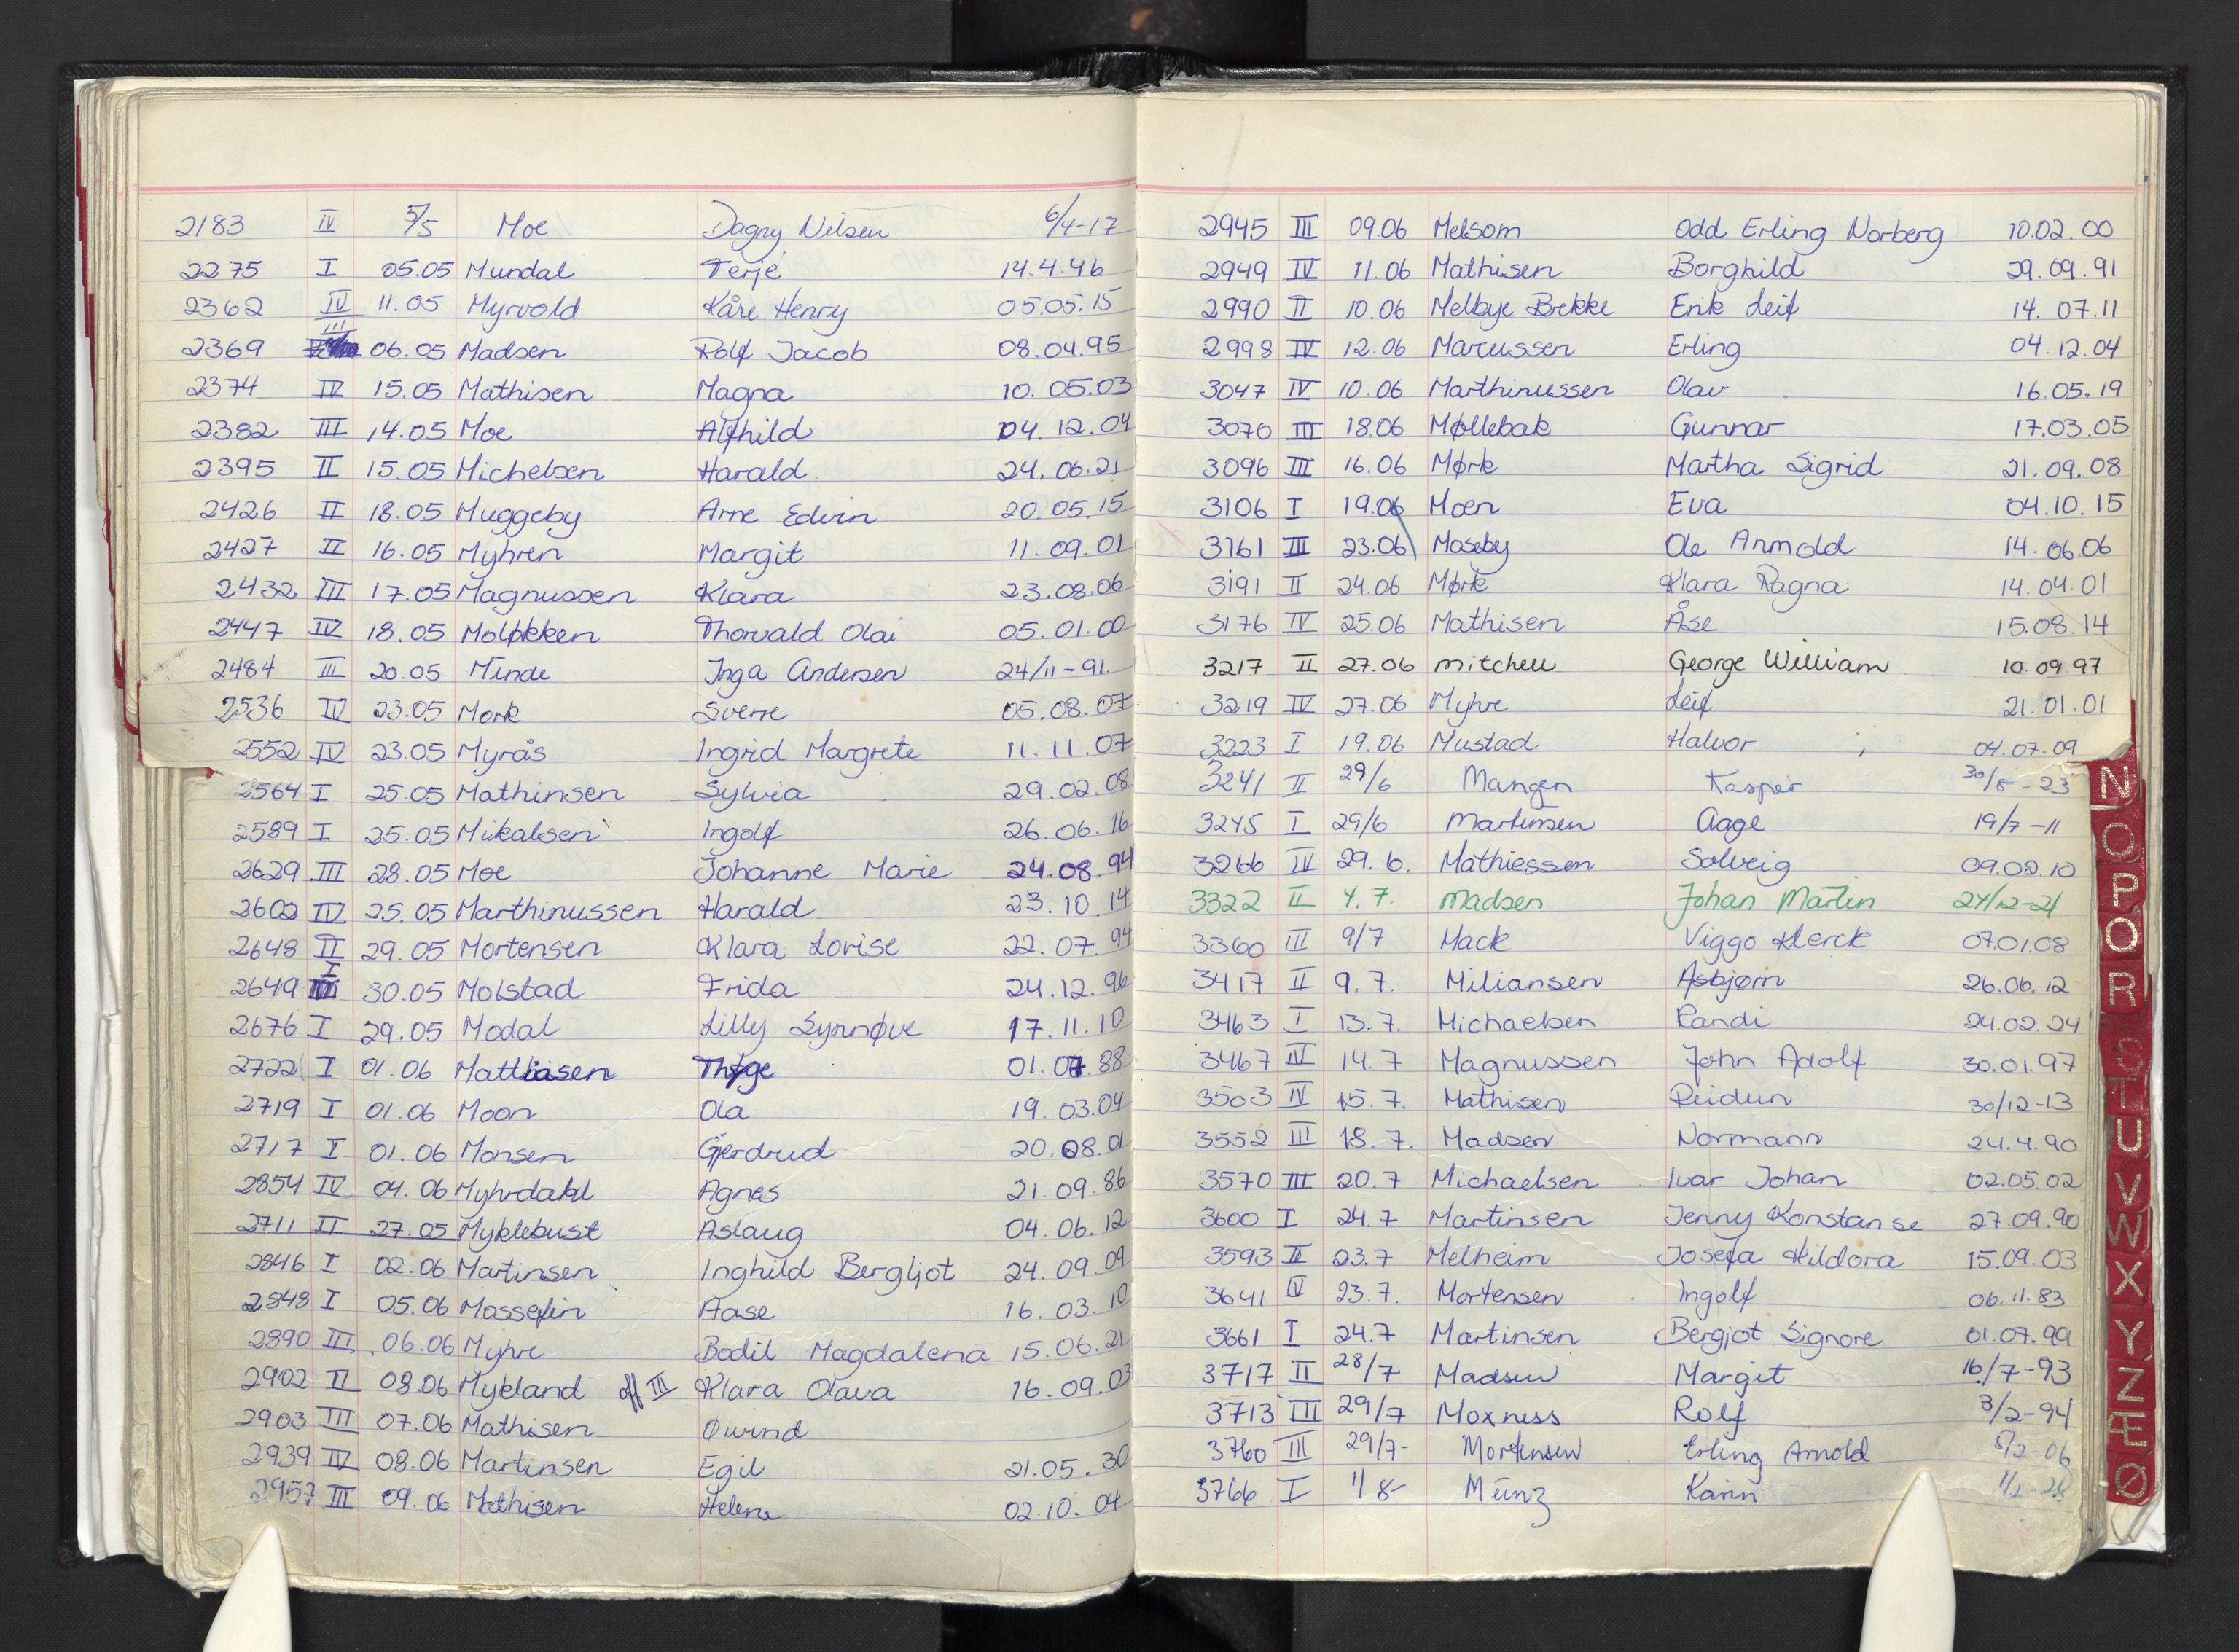 2183 IV 5/5 Moe Dagny Nilsen 6/4-17
2275 I 05.05 Mundal Terje 14.4.46
2362 IV 11.05 Myrvold Kåre Henry 05.05.15
2369 III 06.05 Madsen Rolf Jacob 08.04.95
2374 IV 15.05 Mathisen Magna 10.05.03
2382 III 14.05 Moe Alfhild 04.12.04
2395 II 15.05 Michelsen Harald 24.06.21
2426 II 18.05 Muggeby Arne Edvin 20.05.15
2427 II 16.05 Myhren Margit 11.09.01
2432 III 17.05 Magnussen Klara 23.08.06
2447 IV 18.05 Moløkken Thorvald Olai 05.01.00
2484 III 20.05 Minde Inga Andersen 24/11-91
2536 IV 23.05 Mork Sverre 05.08.07
2552 IV 23.05 Myrås Ingrid Margrete 11.11.07
2564 I 25.05 Mathinsen Sylvia 29.02.08
2589 I 25.05 Mikalsen Ingolf 26.06.16
2629 III 28.05 Moe Johanne Marie 24.08.94
2602 IV 25.05 Marthinussen Harald 23.10.14
2648 II 29.05 Mortensen Klara Lovise 22.07.94
2649 I 30.05 Molstad Frida 24.12.96
2676 I 29.05 Modal Lilly Synnøve 17.11.10
2722 I 01.06 Mattiasen Thyge 01.07.88
2719 I 01.06 Moon Ola 19.03.04
2717 I 01.06 Monsen Gjerdrud 20.08.01
2854 IV 04.06 Myhrdahl Agnes 21.09.86
2711 II 27.05 Myklebust Aslaug 04.06.12
2846 I 02.06 Martinsen Inghild Bergljot 24.09.09
2848 I 05.06 Massefin Aase 16.03.10
2890 III 06.06 Myhre Bodil Magdalena 15.06.21
2902 II 08.06 Mykland III Klara Olava 16.09.03
2903 III 07.06 Mathisen Øivind
2939 IV 08.06 Martinsen Egil 21.05.30
2957 III 09.06 Mathisen Helene 02.10.04
2945 III 09.06 Melsom Odd Erling Norberg 10.02.00
2949 IV 11.06 Mathisen Borghild 29.09.91
2990 II 10.06 Melbye Brekke Erik Leif 14.07.11
2998 IV 12.06 Marcussen Erling 04.12.04
3047 IV 10.06 Marthinussen Olav 16.05.19
3070 III 18.06 Møllebak Gunnar 17.03.05
3096 III 16.06 Mørk Martha Sigrid 21.09.08
3106 I 19.06 Moen Eva 04.10.15
3161 III 23.06 Moseby Ole Arnold 14.06.06
3191 II 24.06 Mørk Klara Ragna 14.04.01
3176 IV 25.06 Mathisen Åse 15.08.14
3217 II 27.06 Mitchell George William 10.09.97
3219 IV 27.06 Myhre Leif 21.01.01
3223 I 19.06 Mustad Halvor 04.07.09
3241 II 29/6 Mangen Kasper 30/5-23
3245 I 29/6 Martinsen Aage 19/7-11
3266 IV 29.6. Mathiessen Solveig 09.02.10
3322 II 4.7. Madsen Johan Martin 24/12-21
3360 III 9/7 Mack Viggo Klerck 07.01.08
3417 II 9.7. Miliansen Asbjørn 26.06.12
3463 I 13.7. Michaelsen Randi 24.02.24
3467 IV 14.7 Magnussen John Adolf 30.01.97
3503 IV 15.7. Mathisen Reidun 30/12-13
3552 III 18.7. Madsen Normann 24.4.90
3570 III 20.7 Michaelsen Ivar Johan 02.05.02
3600 I 24.7 Martinsen Jenny Konstanse 27.09.90
3593 II 23.7 Melheim Josefa Hildora 15.09.03
3641 IV 23.7. Mortensen Ingolf 06.11.83
3661 I 24.7 Martinsen Bergjot Signore 01.07.99
3717 II 28/7 Madsen Margit 16/7-93
3713 III 29/7 Moxness Rolf 3/2-94
3760 III 29/7- Mortensen Erling Arnold
3766 I 1/8- Münz Karin
N
O
P
Q
R
S
T
U
V
W
X
Y
Z
Æ
Ø